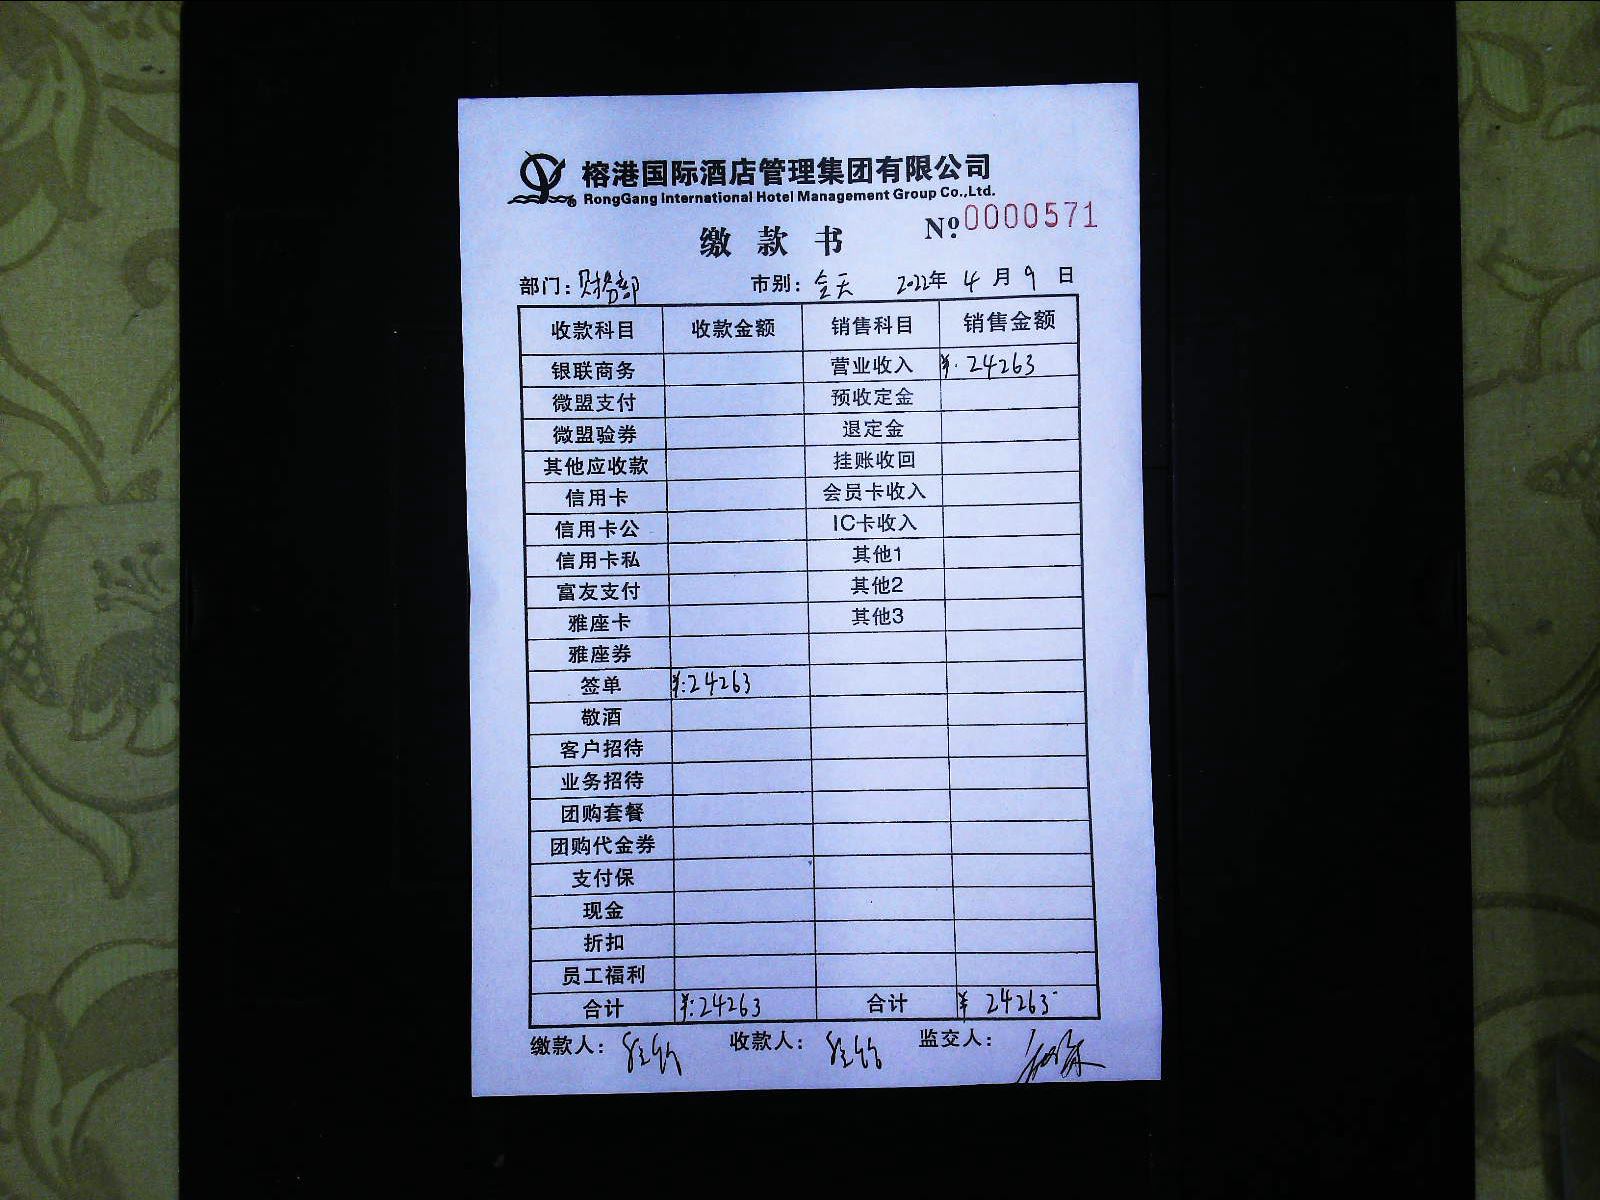 榕港国际酒店管理集团有限公司
RongGang International Hotel Management Group Co.,Ltd.
缴款书 Nº 0000571
部门：财务部 市别：全天 2022年 4月 9日
收款科目 收款金额 销售科目 销售金额
银联商务 营业收入 ¥:24263
微盟支付 预收定金
微盟验券 退定金
其他应收款 挂账收回
信用卡 会员卡收入
信用卡公 IC卡收入
信用卡私 其他1
富友支付 其他2
雅座卡 其他3
雅座券
签单 ¥:24263
敬酒
客户招待
业务招待
团购套餐
团购代金券
支付保
现金
折扣
员工福利
合计 ¥:24263 合计 ¥ 24263
缴款人： 收款人： 监交人：